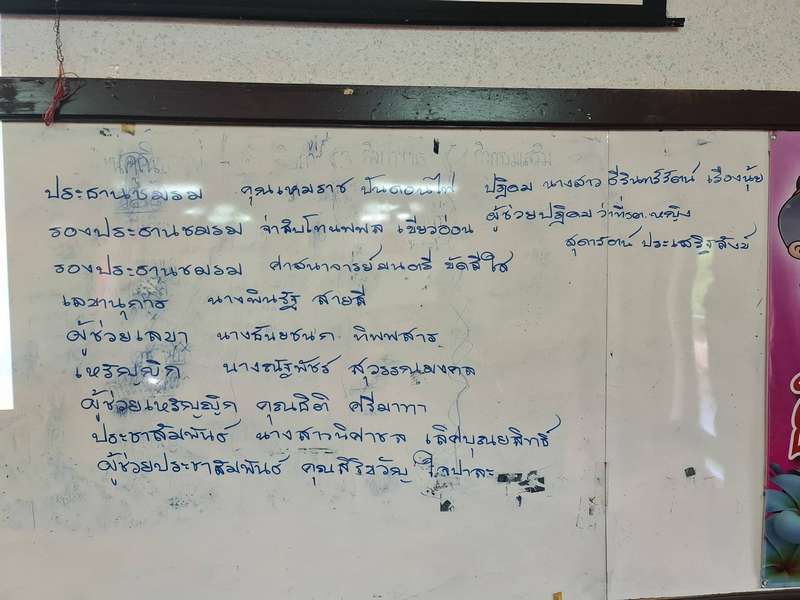 ประธานชมรม คุณเหมราช ปันดอนไฟ ปฏิคม นางสาว ธีรินทร์รัตน์ เรืองนุ้ย
รองประธานชมรม จ่าสิบโทนพพล เขียวอ่อน ผู้ช่วยปฏิคม ว่าที่รต.หญิง
สุดารัตน์ ประเสริฐสังข์
รองประธานชมรม ศาสนาจารย์มนตรี ขัดสีใส
เลขานุการ นางพินรัฐ สายสี
ผู้ช่วยเลขา นางธันยชนก ทิพพสาร
เหรัญญิก นางณัฐพัชร์ สุวรรณมงคล
ผู้ช่วยเหรัญญิก คุณธิติ ศรีมาทา
ประชาสัมพันธ์ นางสาวนิศาชล เลิศบุณยสิทธิ์
ผู้ช่วยประชาสัมพันธ์ คุณสิริขวัญ ใจปาละ